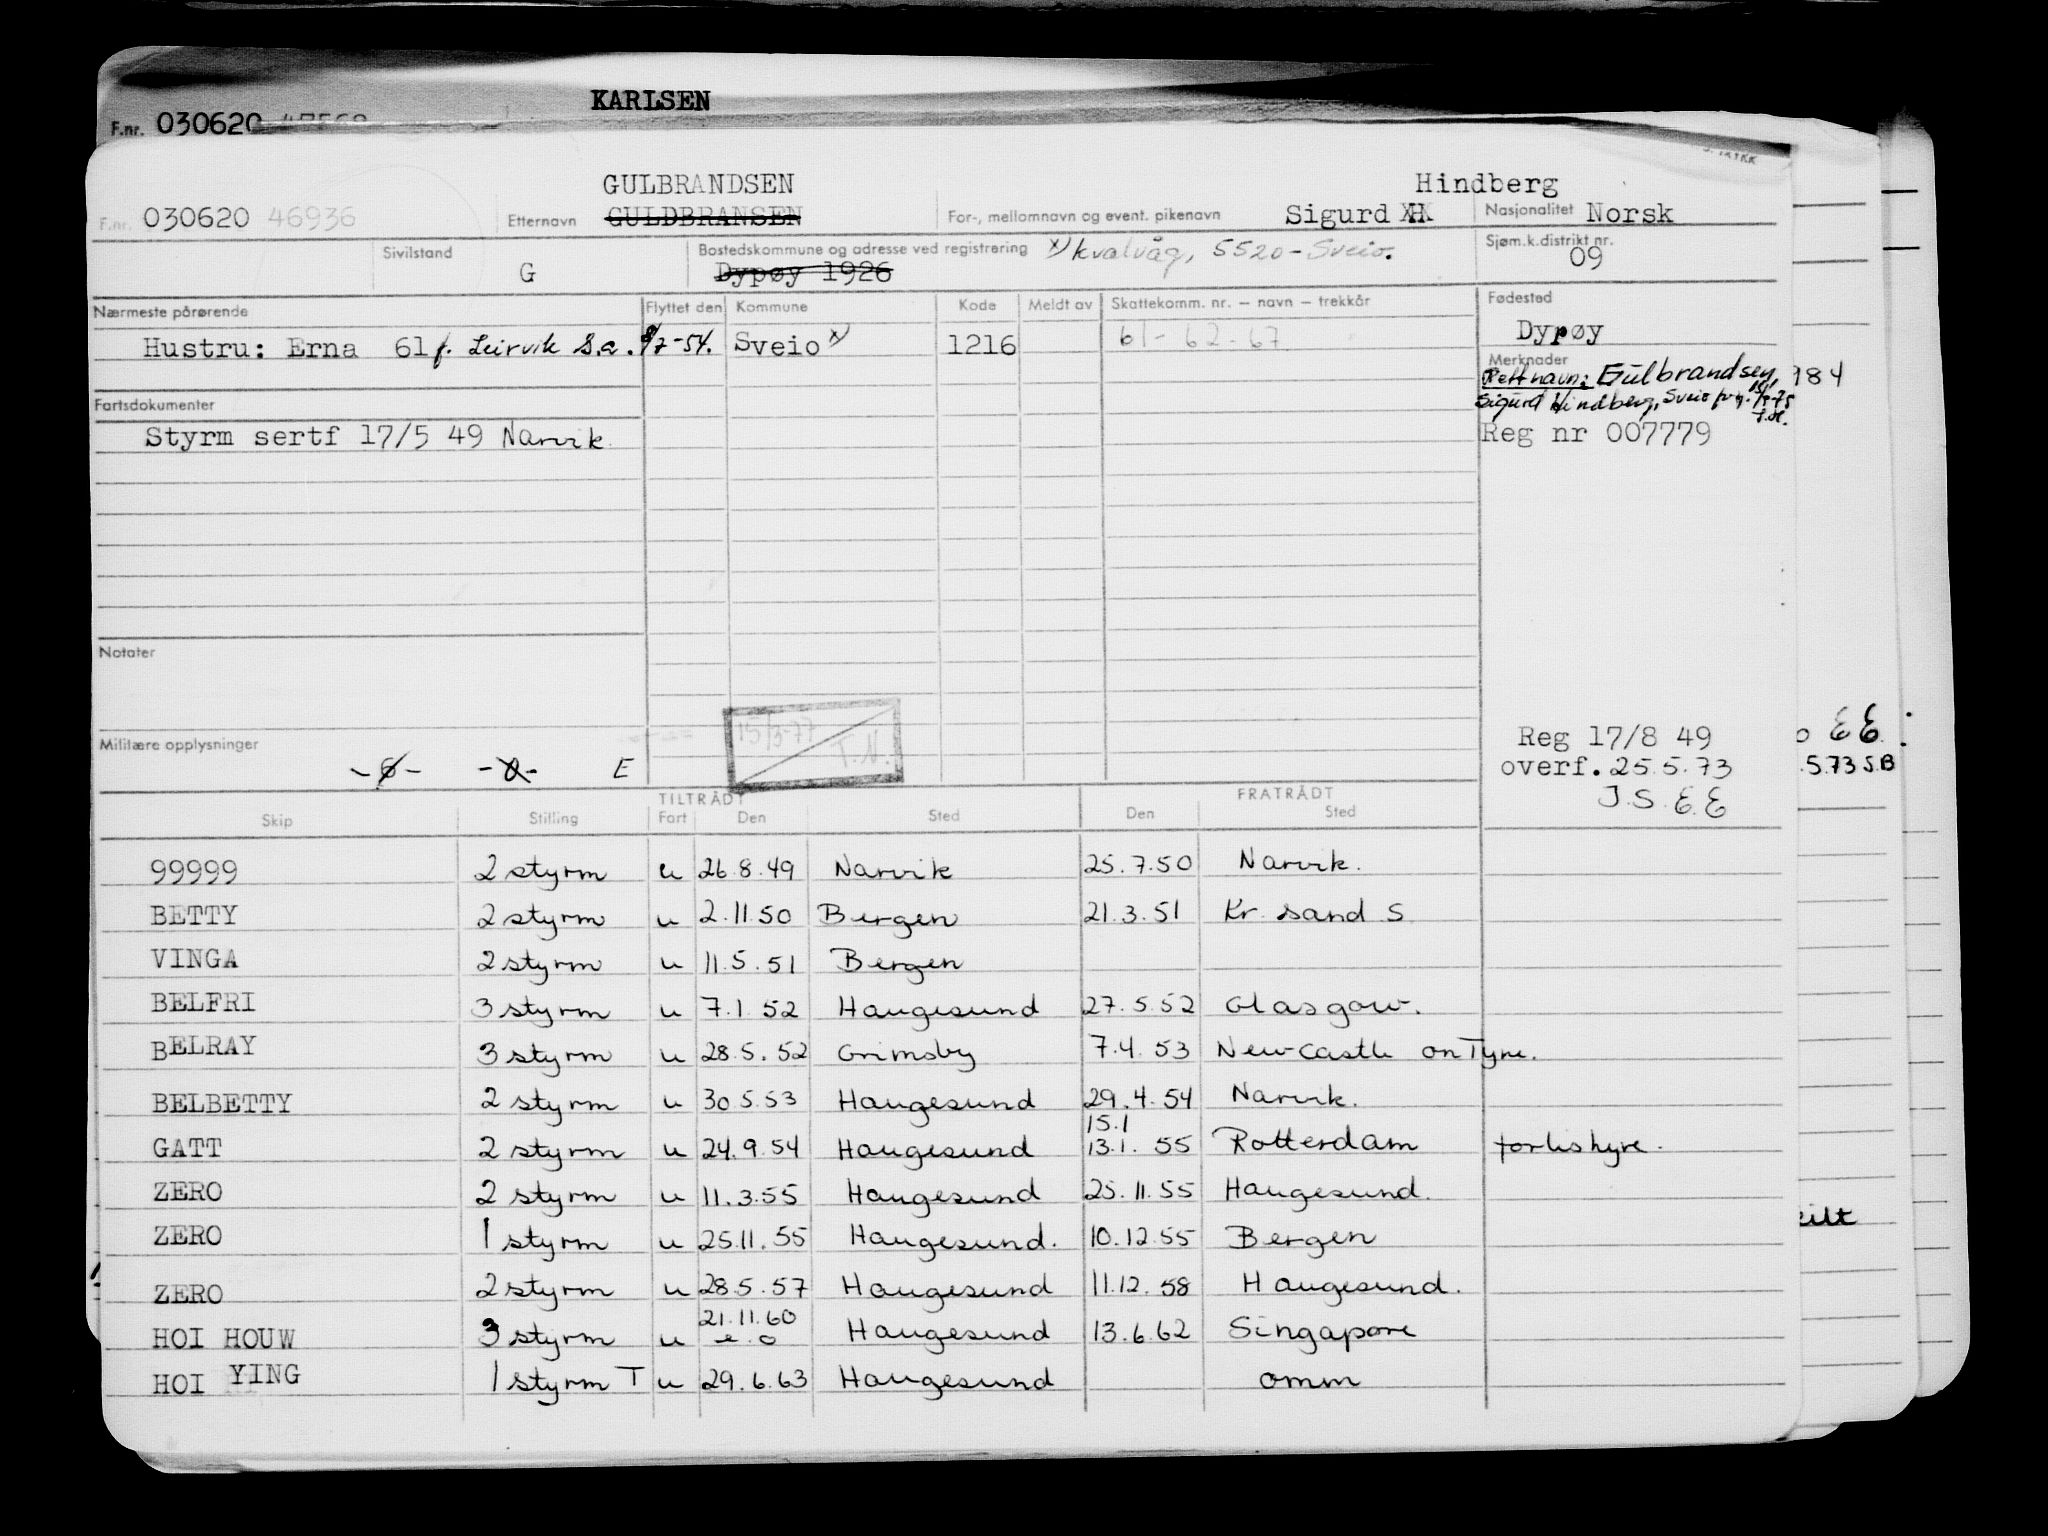 KARLSEN
F.nr. 030620
GULBRANDSEN Hindberg
F.nr. 030620 46936 Etternavn GULDBRANSEN For-, mellomnavn og event. pikenavn Sigurd Nasjonalitet Norsk
Sivilstand G Bostedskommune og adresse ved registrering x) Kvalvåg, 5520 - Sveio. Sjøm.k.distrikt nr. 09
Dypøy 1926
Nærmeste pårørende Flyttet den Kommune Kode Meldt av Skattekomm. nr. — navn — trekkår Fødested
Hustru: Erna 61 f. Leirvik S.a. 9/7-54. Sveio x) 1216 61-62-67 Dypøy
Merknader
Rett navn: Gulbrandsen, 984
Sigurd Hindberg, Sveio
Fartsdokumenter
Styrm sertf 17/5 49 Narvik Reg nr 007779
Notater
15/3-77 T.N.
Militære opplysninger
E
Reg 17/8 49 EE
overf. 25.5.73 .5.73 S.B
J.S. E.E
TILTRÅDT FRATRÅDT
Skip Stilling Fart Den Sted Den Sted
99999 2 styrm u 26.8.49 Narvik 25.7.50 Narvik.
BETTY 2 styrm u 2.11.50 Bergen 21.3.51 Kr. sand S
VINGA 2 styrm u 11.5.51 Bergen
BELFRI 3 styrm u 7.1.52 Haugesund 27.5.52 Glasgow.
BELRAY 3 styrm u 28.5.52 Grimsby 7.4.53 Newcastle on Tyne.
BELBETTY 2 styrm u 30.5.53 Haugesund 29.4.54 Narvik.
15.1
GATT 2 styrm u 24.9.54 Haugesund 13.1.55 Rotterdam forlishyre.
ZERO 2 styrm u 11.3.55 Haugesund 25.11.55 Haugesund.
ZERO 1 styrm u 25.11.55 Haugesund. 10.12.55 Bergen
ZERO 2 styrm u 28.5.57 Haugesund 11.12.58 Haugesund.
21.11.60
HOI HOUW 3 styrm u e.o Haugesund 13.6.62 Singapore
HOI YING 1 styrm T u 29.6.63 Haugesund omm